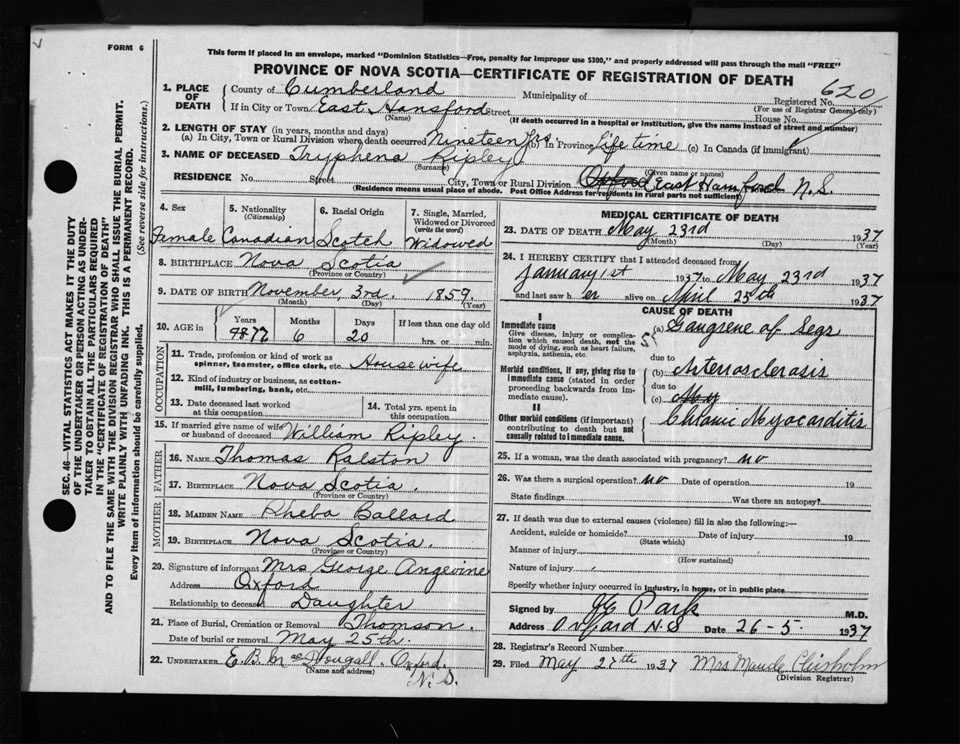 FORM 6
This form if placed in an envelope, marked "Dominion Statistics—Free, penalty for improper use $300," and properly addressed will pass through the mail "FREE"
PROVINCE OF NOVA SCOTIA—CERTIFICATE OF REGISTRATION OF DEATH
1. PLACE OF DEATH
County of Cumberland Municipality of Registered No. 620
(For use of Registrar General only)
If in City or Town East Hansford Street House No.
(Name) (If death occurred in a hospital or institution, give the name instead of street and number)
2. LENGTH OF STAY (in years, months and days)
(a) In City, Town or Rural Division where death occurred Nineteen Yrs. (b) In Province Life time (c) In Canada (if immigrant)
3. NAME OF DECEASED Tryphena Ripley
(Surname) (Given name or names)
RESIDENCE No. Street City, Town or Rural Division Oxford East Hansford N.S.
(Residence means usual place of abode. Post Office Address for residents in rural parts not sufficient)
SEC. 46—VITAL STATISTICS ACT MAKES IT THE DUTY
OF THE UNDERTAKER OR PERSON ACTING AS UNDER-
TAKER TO OBTAIN ALL THE PARTICULARS REQUIRED
IN THE "CERTIFICATE OF REGISTRATION OF DEATH"
AND TO FILE THE SAME WITH THE DIVISION REGISTRAR WHO SHALL ISSUE THE BURIAL PERMIT.
WRITE PLAINLY WITH UNFADING INK. THIS IS A PERMANENT RECORD.
Every item of information should be carefully supplied. (See reverse side for instructions.)
4. Sex 5. Nationality 6. Racial Origin 7. Single, Married,
(Citizenship) Widowed or Divorced
(write the word)
Female Canadian Scotch Widowed
8. BIRTHPLACE Nova Scotia
(Province or Country)
9. DATE OF BIRTH November, 3rd. 1859.
(Month) (Day) (Year)
10. AGE in Years Months Days If less than one day old
77 6 20 hrs. or min.
OCCUPATION
11. Trade, profession or kind of work as
spinner, teamster, office clerk, etc. Housewife
12. Kind of industry or business, as cotton-
mill, lumbering, bank, etc.
13. Date deceased last worked
at this occupation
14. Total yrs. spent in
this occupation
15. If married give name of wife
or husband of deceased William Ripley.
FATHER
16. NAME Thomas Ralston
17. BIRTHPLACE Nova Scotia.
(Province or Country)
MOTHER
18. MAIDEN NAME Rheba Ballard
19. BIRTHPLACE Nova Scotia.
(Province or Country)
20. Signature of informant Mrs George Angevine
Address Oxford
Relationship to deceased Daughter
21. Place of Burial, Cremation or Removal Thomson.
Date of burial or removal May 25th.
22. UNDERTAKER E.B. McDougall. Oxford.
(Name and address) N.S.
MEDICAL CERTIFICATE OF DEATH
23. DATE OF DEATH May 23rd 1937
(Month) (Day) (Year)
24. I HEREBY CERTIFY that I attended deceased from
January 1st 1937 to May 23rd 1937
and last saw her alive on April 25th 1937
CAUSE OF DEATH
I
Immediate cause
Give disease, injury or complica-
tion which caused death, not the
mode of dying, such as heart failure,
asphyxia, asthenia, etc.
(a) Gangrene of Legs
due to
Morbid conditions, if any, giving rise to
immediate cause (stated in order
proceeding backwards from im-
mediate cause).
(b) Arteriosclerosis
due to
(c) My
II
Other morbid conditions (if important)
contributing to death but not
causally related to immediate cause.
Chronic Myocarditis
25. If a woman, was the death associated with pregnancy? no
26. Was there a surgical operation? no Date of operation 19
State findings Was there an autopsy?
27. If death was due to external causes (violence) fill in also the following:—
Accident, suicide or homicide? Date of injury 19
(State which)
Manner of injury
(How sustained)
Nature of injury
Specify whether injury occurred in industry, in home, or in public place
Signed by J E Park M.D.
Address Oxford N.S Date 26-5- 1937
28. Registrar's Record Number
29. Filed May 27th 1937 Mrs Maude Chisholm
(Division Registrar)